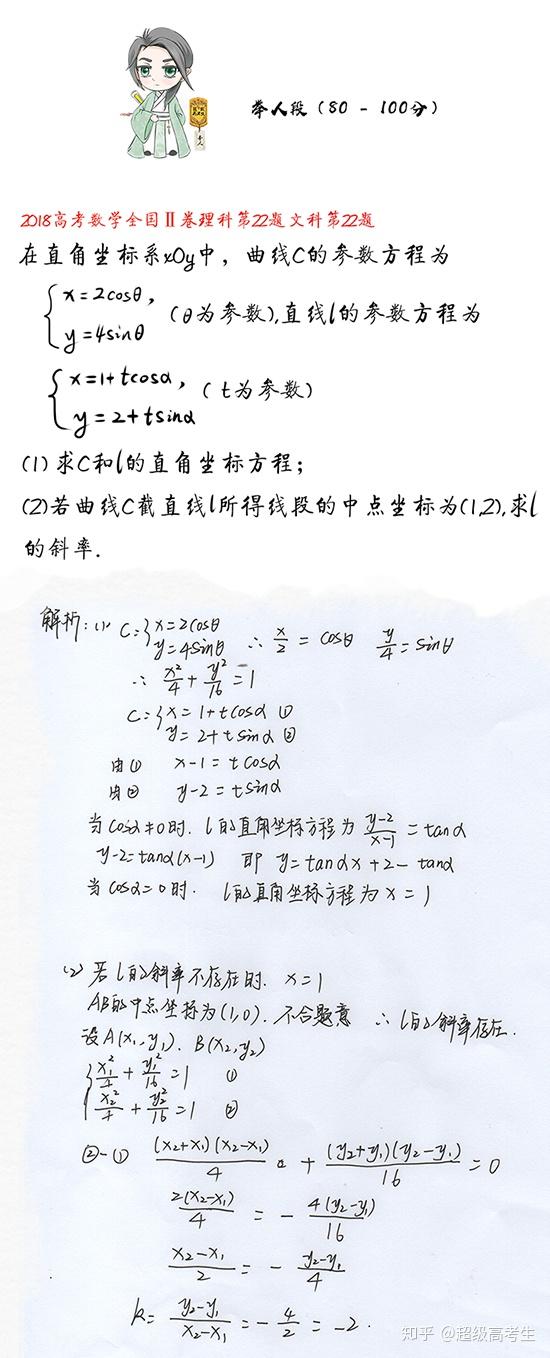 举人段（80 - 100分）
2018高考数学全国Ⅱ卷理科第22题文科第22题
在直角坐标系xOy中，曲线C的参数方程为
{x=2cosθ,
y=4sinθ
(θ为参数),直线l的参数方程为
{x=1+tcosα,
y=2+tsinα
(t为参数)
(1) 求C和l的直角坐标方程；
(2)若曲线C截直线l所得线段的中点坐标为(1,2),求l
的斜率.
解析：(1) C={x=2cosθ
y=4sinθ ∴ x/2 = cosθ y/4 = sinθ
∴ x²/4 + y²/16 = 1
C={x=1+tcosα ①
y=2+tsinα ②
由① x-1=tcosα
由② y-2=tsinα
当cosα≠0时. l的直角坐标方程为 (y-2)/(x-1) = tanα
y-2=tanα(x-1) 即 y=tanαx+2-tanα
当cosα=0时. l的直角坐标方程为x=1
(2) 若l的斜率不存在时. x=1
AB的中点坐标为(1,0). 不合题意 ∴l的斜率存在.
设A(x₁,y₁). B(x₂,y₂)
{x₁²/4 + y₁²/16 = 1 ①
x₂²/4 + y₂²/16 = 1 ②
②-① (x₂+x₁)(x₂-x₁)/4 + (y₂+y₁)(y₂-y₁)/16 = 0
2(x₂-x₁)/4 = - 4(y₂-y₁)/16
(x₂-x₁)/2 = - (y₂-y₁)/4
k= (y₂-y₁)/(x₂-x₁) = - 4/2 = -2.
知乎 @超级高考生